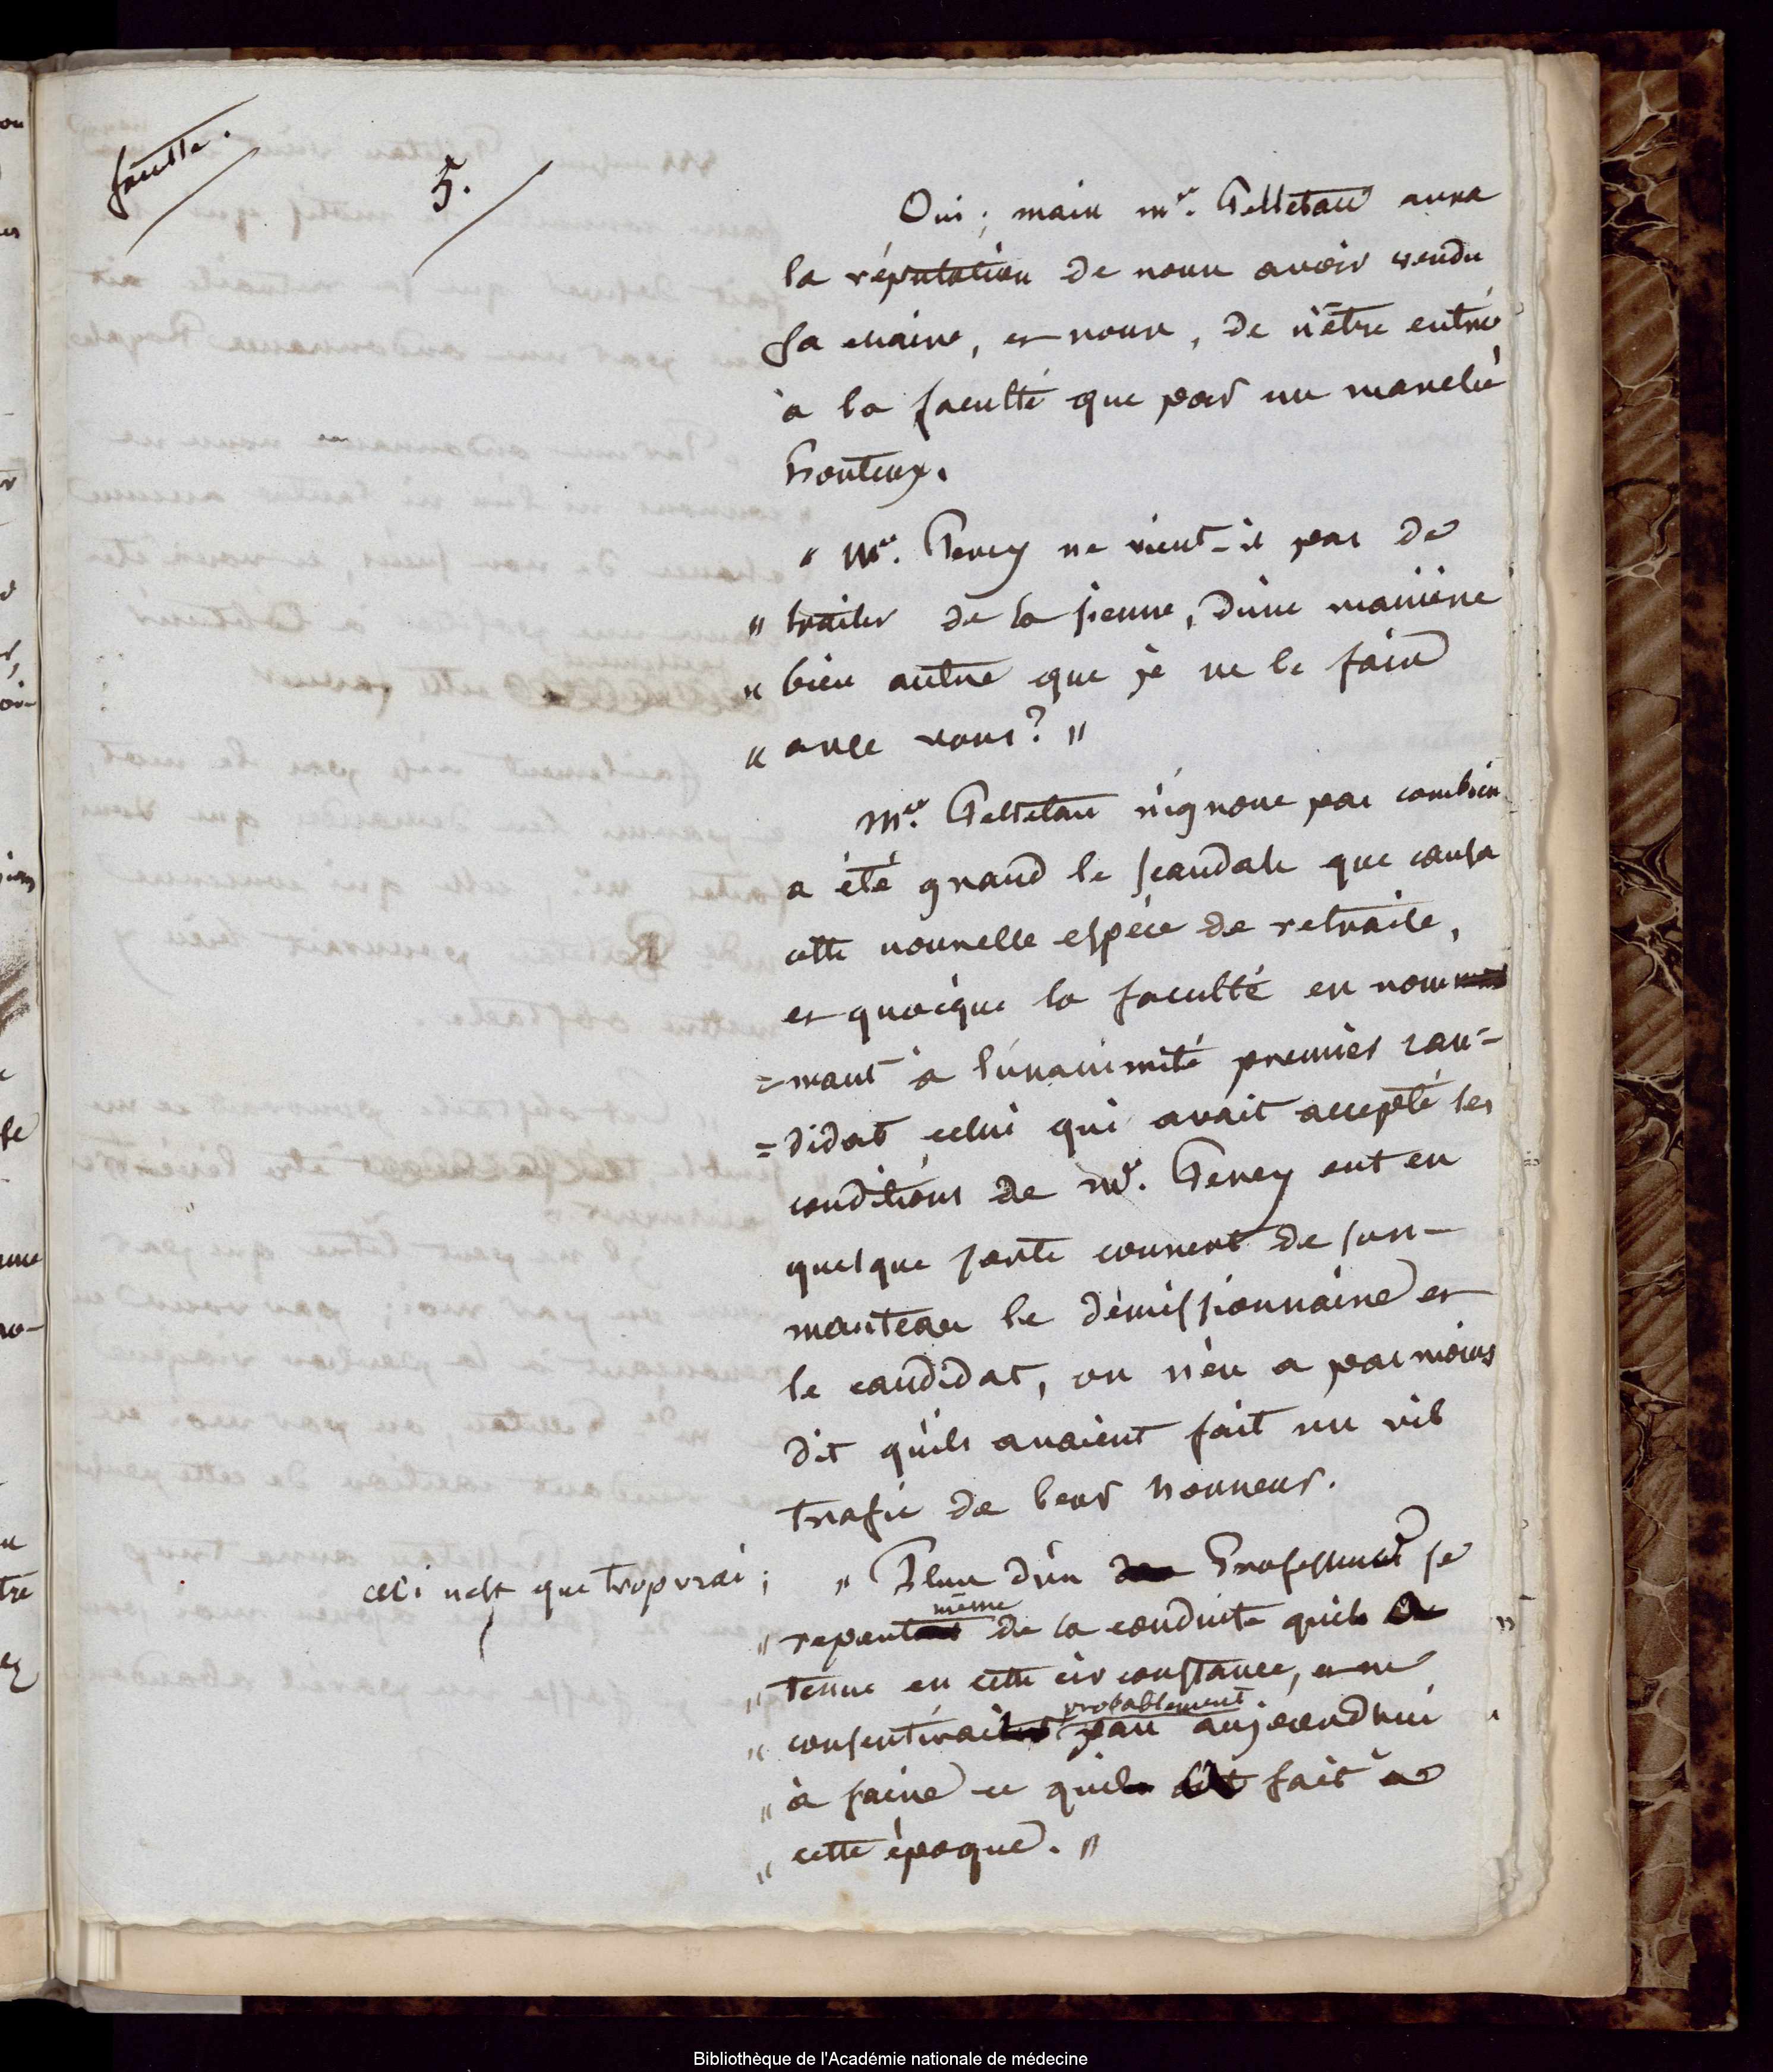 feuille.
5.
Oui; mais Mr. Pelletan aura
la réputation de nous avoir vendu
sa chaire, et nous, de n'être entré
à la faculté que par un marché
honteux.
" Mr. Percy ne vient-il pas de
" traiter de la sienne, d'une manière
" bien autre que je ne le fais
" avec vous? "
Mr. Pelletan n'ignore pas combien
a été grand le scandale que causa
cette nouvelle espèce de retraite,
et quoique la faculté en nom
=mant à l'unanimité premier can=
=didat celui qui avait accepté les
conditions de Mr. Percy eut en
quelque sorte couvert de son
manteau le démissionnaire et
le candidat, on n'en a pas moins
dit qu'ils avaient fait un vil
trafic de leur honneur.
ceci n'est que trop vrai; " Plus d'un Professeur se
même
" repent de la conduite qu'il a "
" tenue en cette circonstance, et ne
probablement.
" consentirait pas aujourd'hui "
" à faire ce qu'il fait à
" cette époque. "
Bibliothèque de l'Académie nationale de médecine